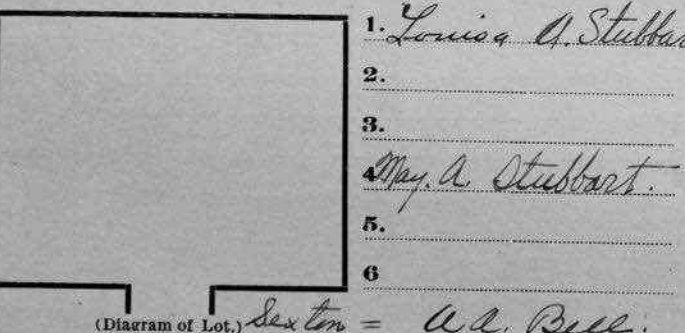 1. Louisa A. Stubbar
2.
3.
4 May. A. Stubbart.
5.
6
(Diagram of Lot.) Sexton = A.A. Bell.